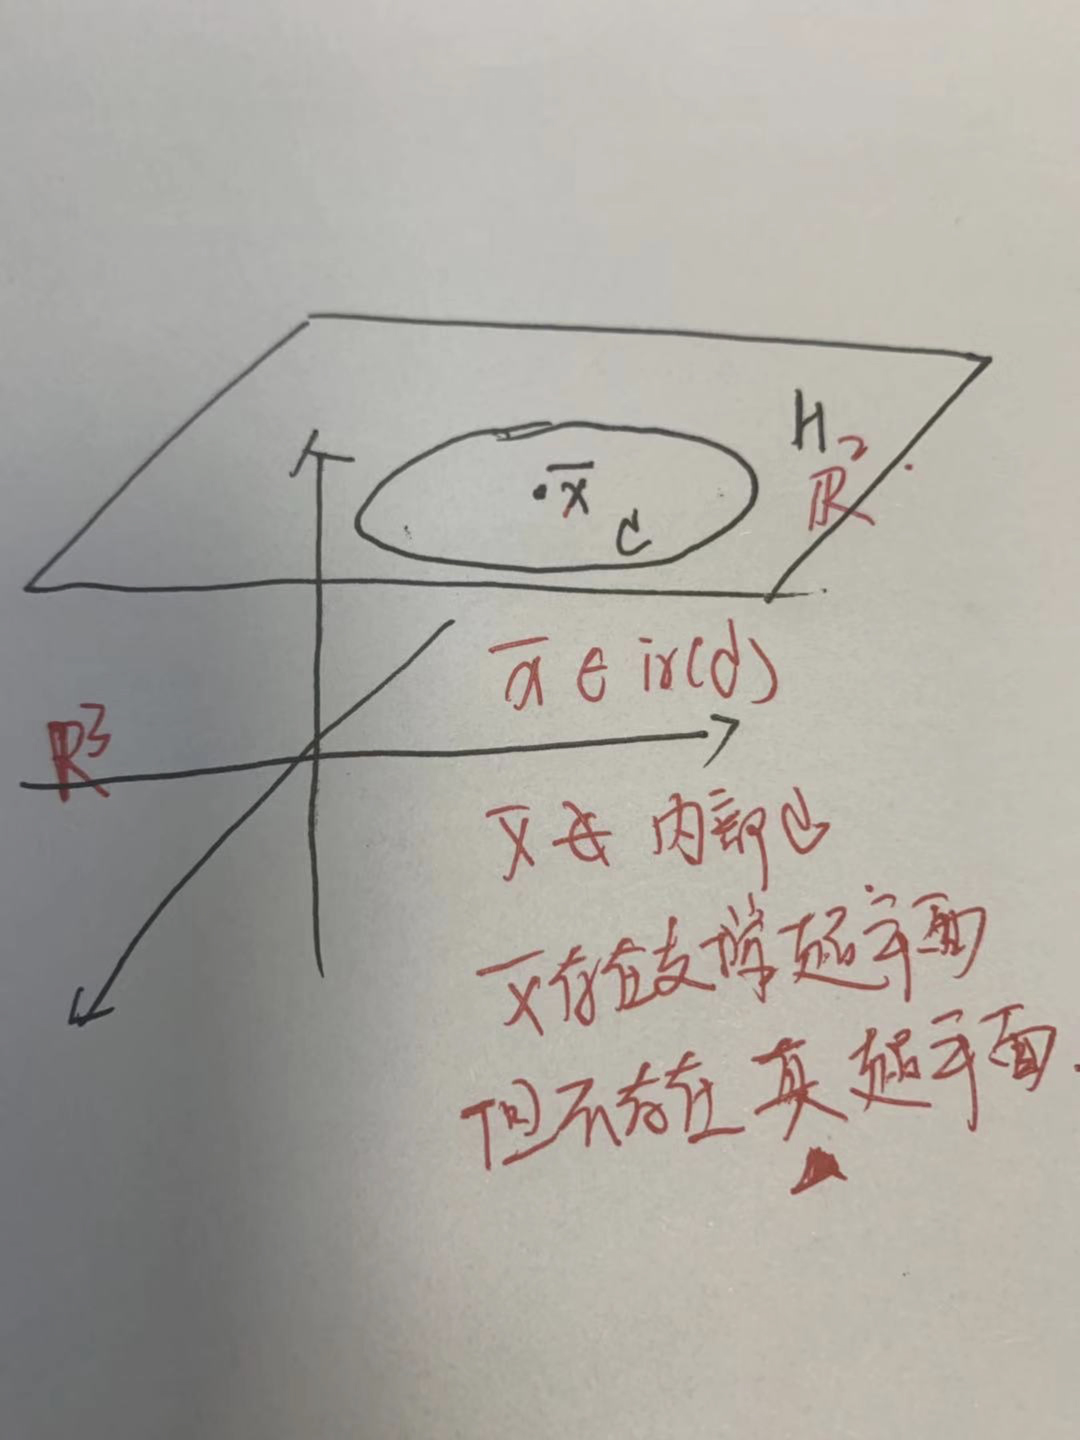 H
ℝ²
·x̄
C
x̄ ∈ ir(C)
ℝ³
x̄ ∉ 内部C
x̄存在支撑超平面
但不存在真超平面.